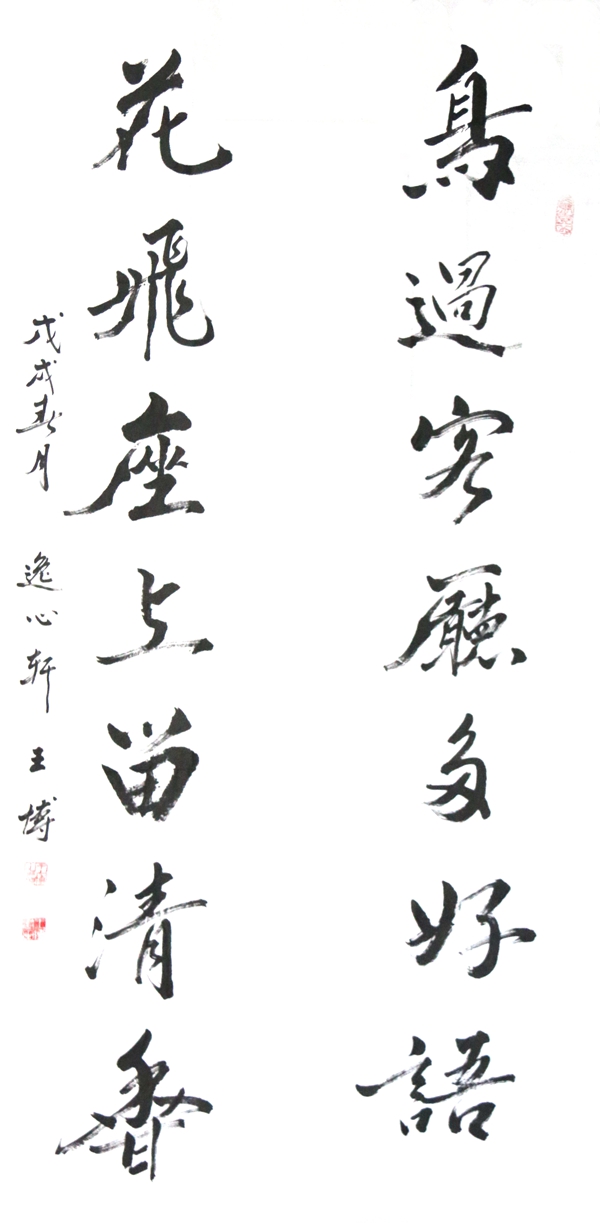 鳥過客廳多好語
花飛座上留清香
戊戌春月 逸心軒 王博